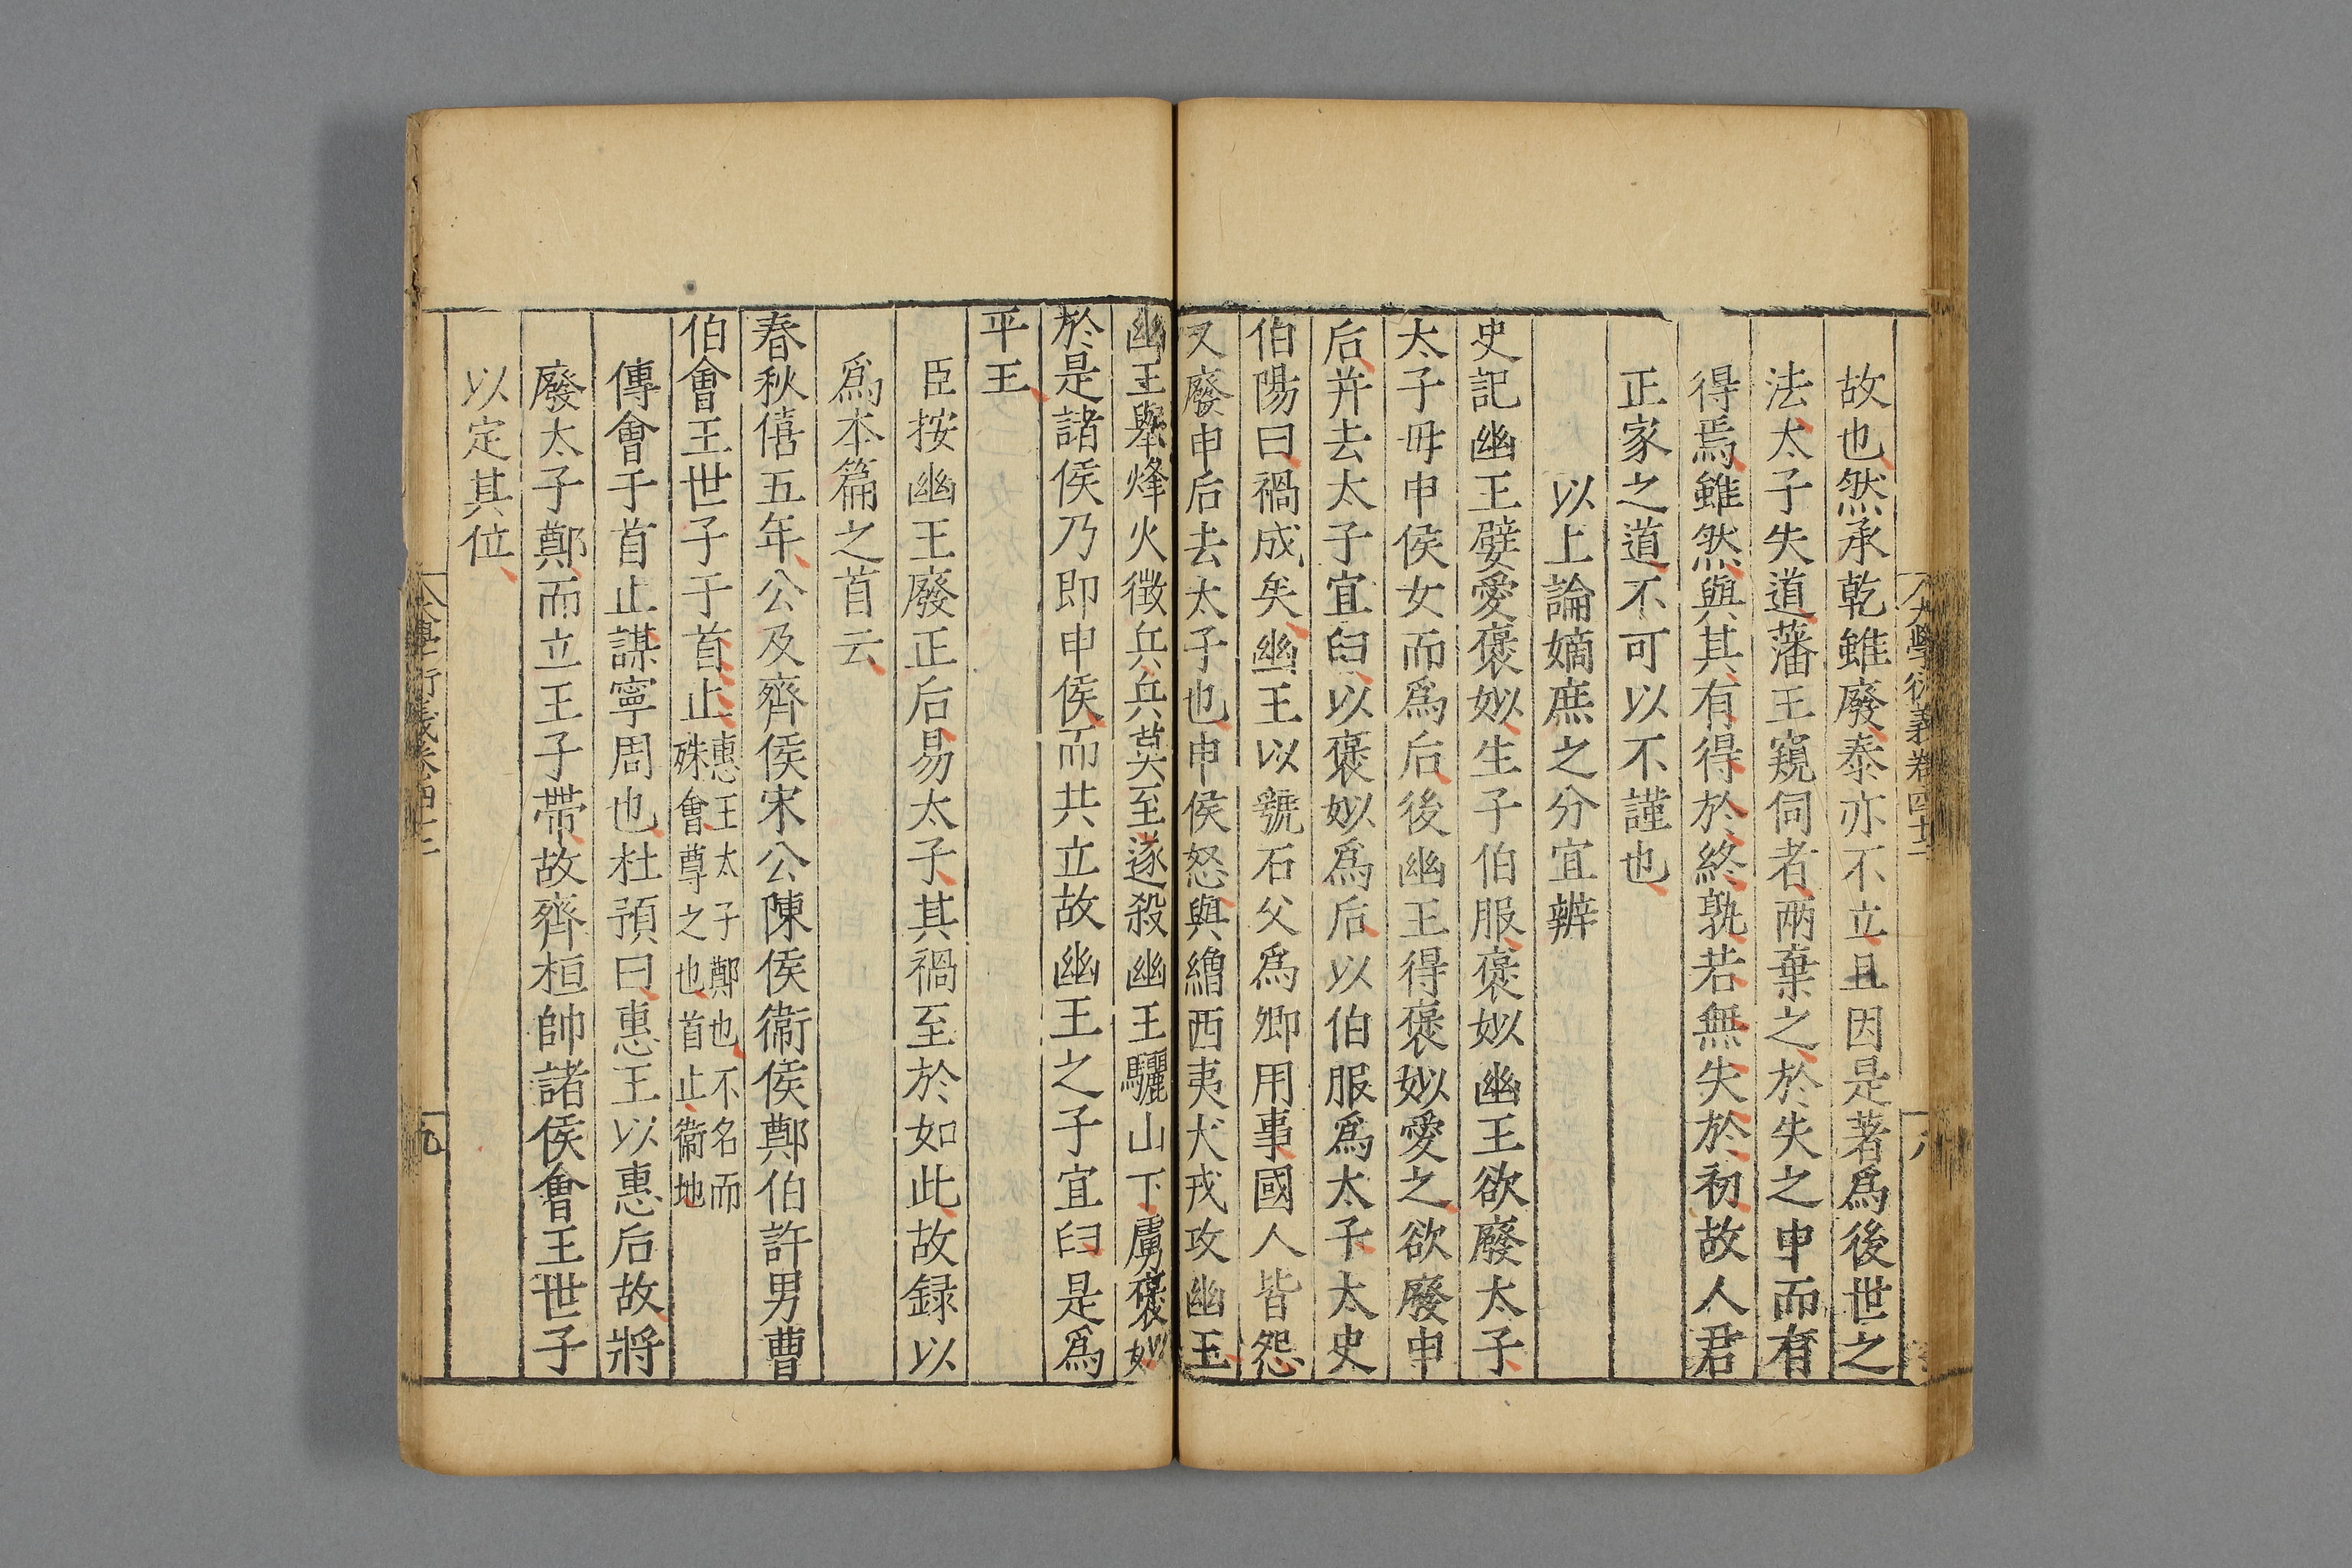 大學衍義卷四十二
八
故也然承乾雖廢泰亦不立且因是著爲後世之
法太子失道藩王窺伺者兩棄之於失之中而有
得焉雖然與其有得於終孰若無失於初故人君
正家之道不可以不謹也
以上論嫡庶之分宜辨
史記幽王嬖愛褒姒生子伯服褒姒幽王欲廢太子
太子毋申侯女而爲后後幽王得褒姒愛之欲廢申
后并去太子宜臼以褒姒爲后以伯服爲太子太史
伯陽曰禍成矣幽王以虢石父爲卿用事國人皆怨
又廢申后去太子也申侯怒與繒西夷犬戎攻幽王
幽王舉烽火徵兵兵莫至遂殺幽王驪山下虜褒姒
於是諸侯乃即申侯而共立故幽王之子宜臼是爲
平王
臣按幽王廢正后易太子其禍至於如此故録以
爲本篇之首云
春秋僖五年公及齊侯宋公陳侯衞侯鄭伯許男曹
伯會王世子于首止惠王太子鄭也不名而殊會尊之也首止衞地
傳會于首止謀寧周也杜預曰惠王以惠后故將
廢太子鄭而立王子帶故齊桓帥諸侯會王世子
以定其位
大學衍義卷四十二
九